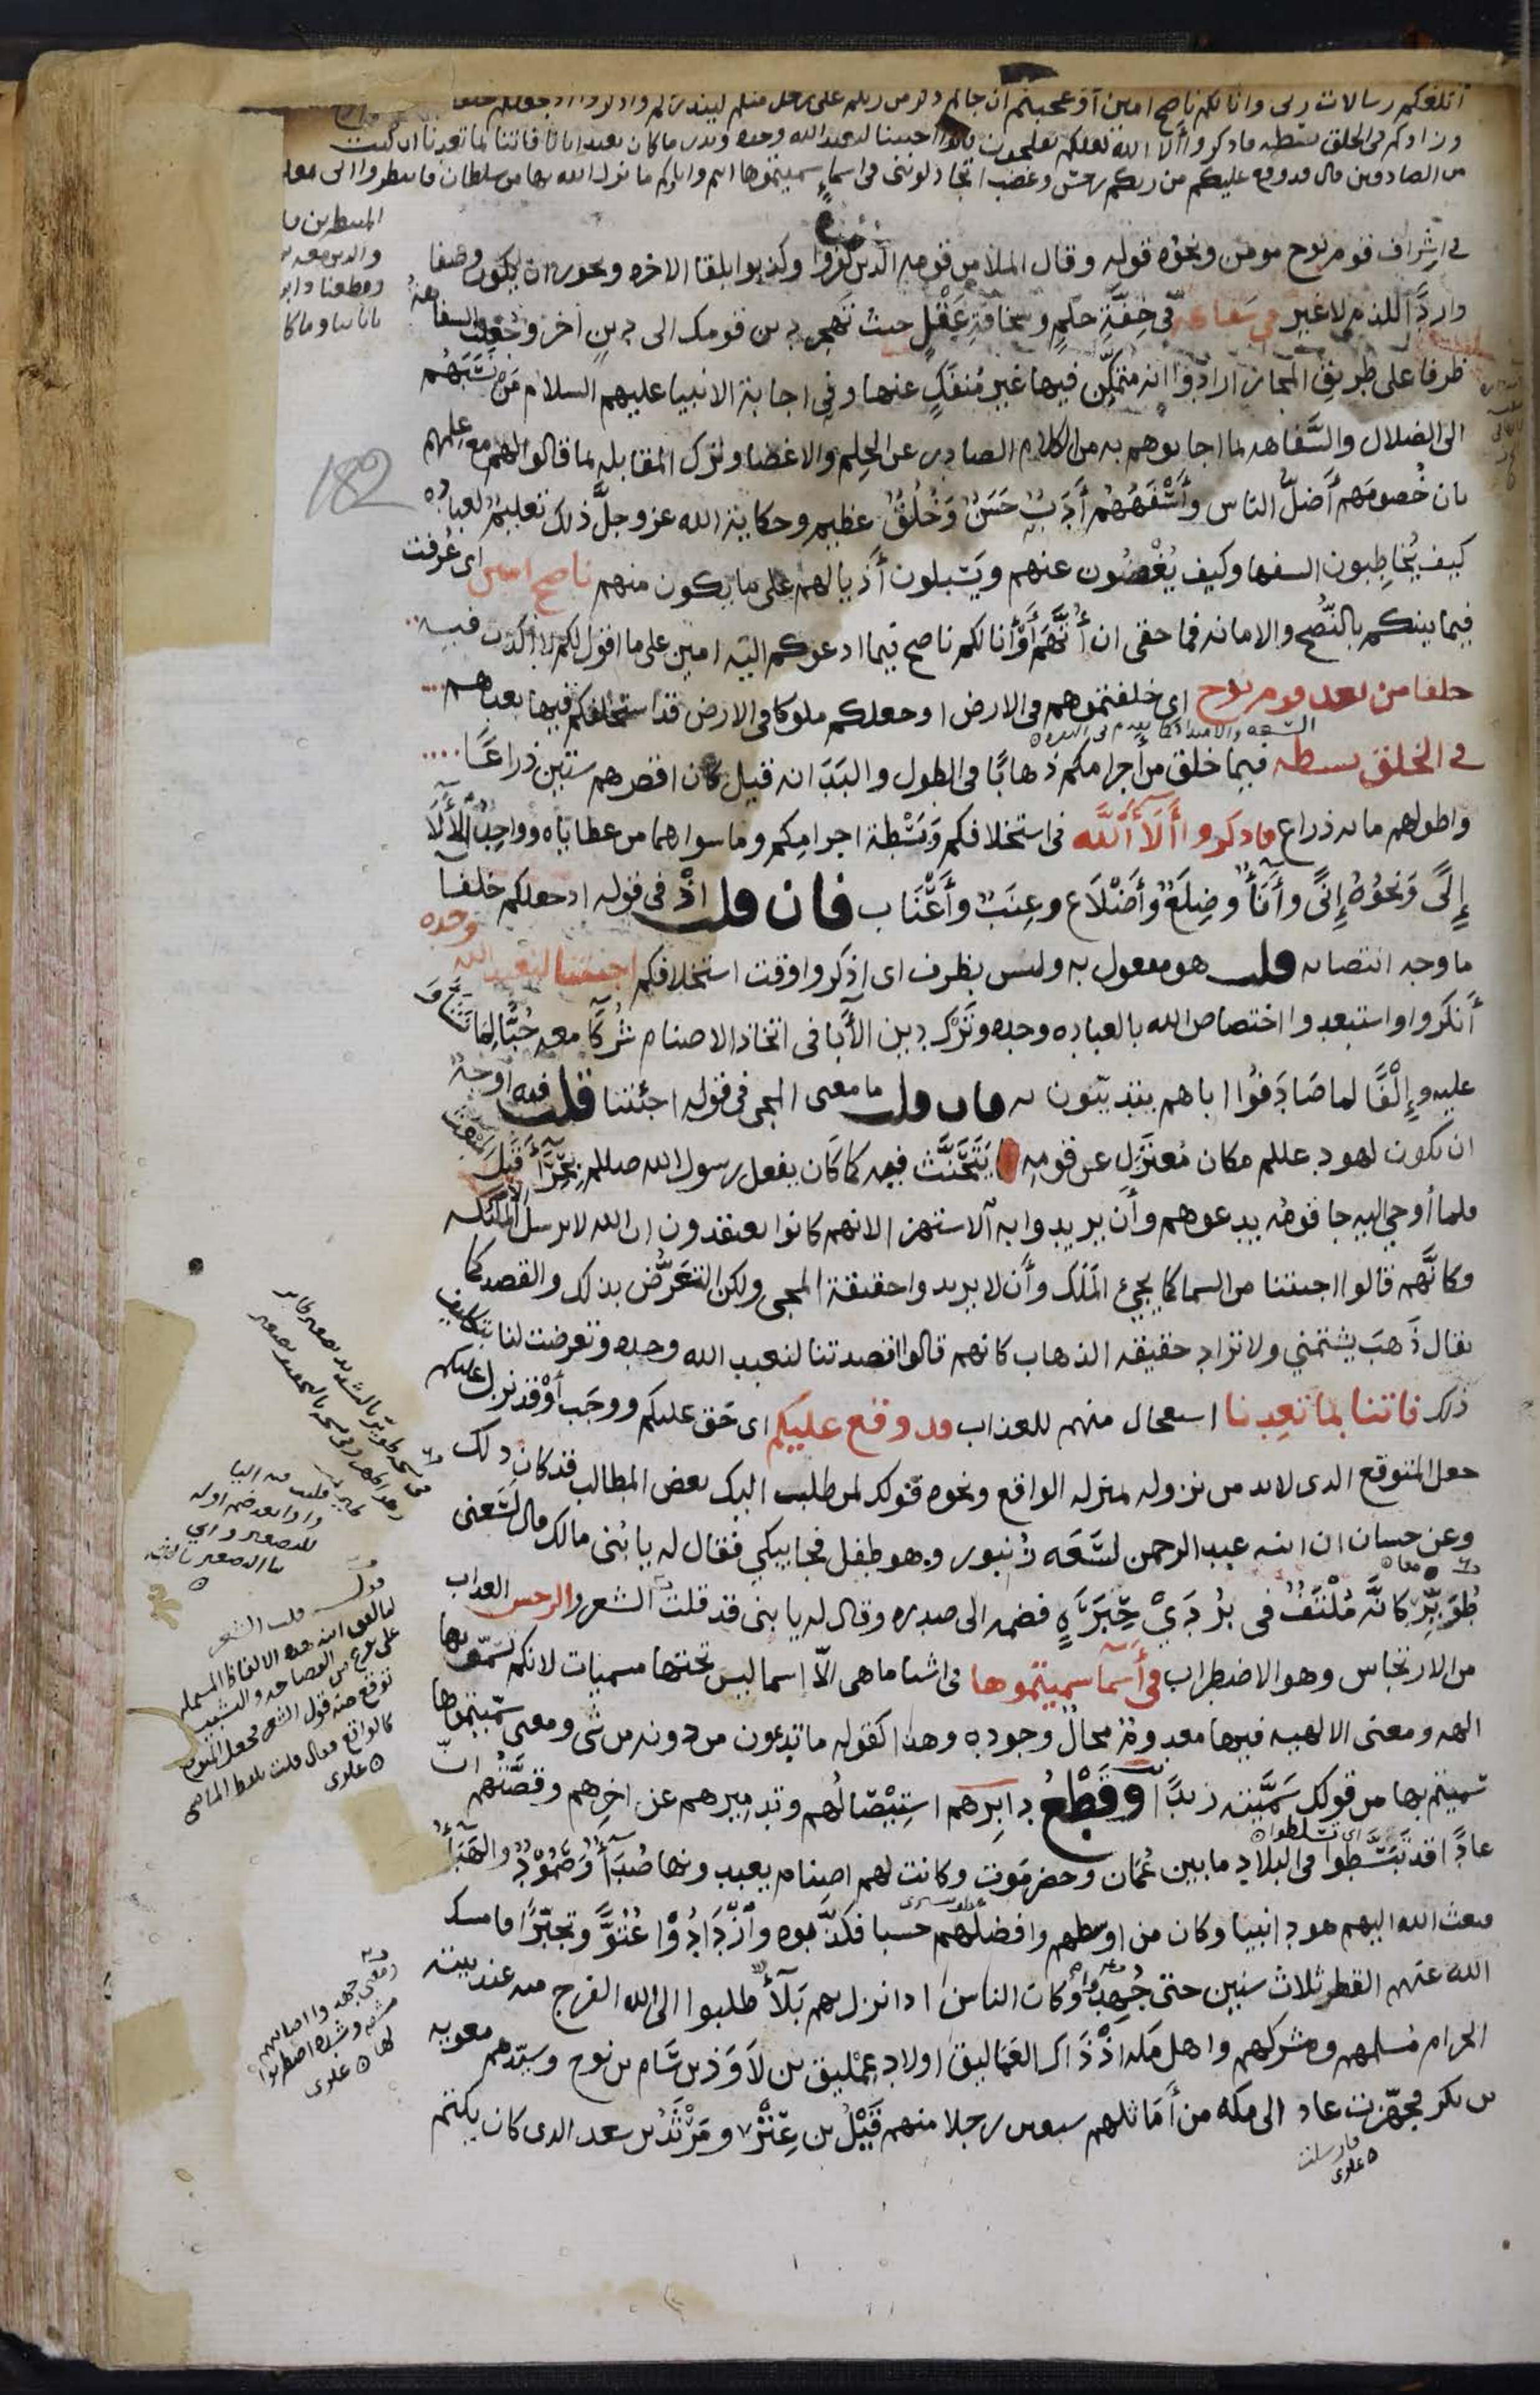 ابلغكم رسالات ربى وانا لكم ناصح امين او عجبتم ان جاكم ذكر من ربكم على رجل منكم لينذركم واذكروا اذ جعلكم خلفا
وزادكم فى الخلق بسطه فاذكروا ألا الله لعلكم تفلحون قالوا اجيتنا لنعبد الله وحده ونذر ما كان يعبد اباونا فاتنا بما تعدنا ان كنت
من الصادقين قال قد وقع عليكم من ربكم رجس وغضب اتجادلوننى فى اسماء سميتموها انتم واباوكم ما نزل الله بها من سلطان فانتظروا انى معكم
المنتظرين
والذين معه
وقطعنا دابر
باياتنا وما كا
فى اشراف قوم نوح مومن ونحوه قوله وقال الملا من قومه الذين كفروا وكذبوا بلقا الاخره ويجوز ان يكون وصفا
واردًا للذم لا غير فى سفاهة فى خِفَّةِ حلمٍ وسخافةِ عَقْلٍ حيث تهجر دين قومك الى دينٍ اخر وجُعِلت السفاهة
ظرفا على طريق المجاز ارادوا انه متمكِّن فيها غير مُنفَكٍّ عنها وفى اجابة الانبيا عليهم السلام مَن نسَبَهُم
الى الضلال والسَّفاهه بما اجابوهم به من الكلام الصادر عن الحِلم والاغضا وترك المقابله بما قالوا لهم مع علمهم
بان خُصومَهم أضلُّ الناس وأَسْفَهُهُم أَدَبٌ حَسَنٌ وخُلُقٌ عظيم وحكاية الله عز وجلَّ ذلك تعليمٌ لعباده
182
كيف يُخاطِبون السفها وكيف يُغْضُون عنهم ويَسْبلون أذيالهم على ما يكون منهم ناصح امين اى عُرفت
فيما بينكم بالنُّصح والامانه فما حقى ان أُتَّهَمَ أوْ أنا لكم ناصح فيما ادعوكم اليه امين على ما اقول لكم لا اكذب فيه
خلفا من بعد قوم نوح اى خلفتموهم فى الارض او جعلكم ملوكا فى الارض قد استخلفكم فيها بعدهم
فى الخلق بسطه فيما خلق من أجرامكم ذهابًا فى الطول والبَدَانه قيل كان اقصرهم ستين ذراعًا
واطولهم مايه ذراع فاذكروا أَلَآ ٱلله فى استخلافكم وبَسْطة اجرامِكم وما سواهما من عطاياه وواحِدُ الألَآ
إلًى ونحوُهُ إنًى وأنَآٌ وضِلَعٌ وأَضْلَاع وعِنَبٌ وأَعْنَاب فان قلت اذْ فى قوله اذ جعلكم خلفآ
ما وجه انتصابه قلت هو مفعول به وليس بظرف اى اذكروا وقت استخلافكم اجيتنا لنعبد الله وحده
أَنكروا واستبعدوا اختصاص الله بالعباده وحده وتَرْك دين الأَبا فى اتخاذ الاصنام شُركَآ معه حُبًّا لِما نشَؤُا
عليه وإِلْفًا لما صَادَفُوا اباهم يتديّنون به فان قلت ما معنى المجى فى قوله اجئتنا قلت فيه اوجهٌ
ان يكون لهود عللم مكان مُعتزَل عن قومِه يَتَحَنَّث فيه كما كان يفعل رسول الله صللم بِحِرَآ قَبل المبعث
فلما أوحِي اليه جا قومَه يدعوهم وأَن يريدوا به آلاستهزا لانهم كانوا يعتقدون ان الله لا يرسل الا الملئكه
وكانَّهم قالوا اجيتنا من السما كما يجئ المَلَك وأن لا يريدوا حقيقة المجى ولكن التعرُّض بذلك والقصد كما
يقال ذَهَبَ يشتمني ولا تراد حقيقه الذهاب كانهم قالوا اقصدتنا لنعبد الله وحده وتعرضت لنا بتكليف
ذلك فاتنا بما تعِدنا استعجال منهم للعذاب قد وقع عليكم اى حَق عليكم ووجَب أوْ قد نزل عليكم
جعل المتوقع الذى لابد من نزوله بمنزله الواقع ونحوه قولك لمن طلب اليك بعض المطالب قد كان ذلك
وعن حسان ان ابنه عبد الرحمن لسَعَه زُنبور وهو طفل فجا يبكي فقال له يا بُنى مالك قال لَسَعنى
طُوَيِّرٌ كانَّه مُلْتَفٌّ فى بُرْدَيْ حِبَرَةٍ فضمه الى صدره وقال له يا بنى قد قلتَ الشعر والرجس العذاب
من الارتجاس وهو الاضطراب فى أسمآ سميتموها فى اشيا ما هى الّا اسما ليس تحتها مسميات لانكم تسمّونها
الهه ومعنى الالهيه فيها معدومٌ محالٌ وجوده وهذا كقوله ما تدعون من دونه من شى ومعنى سمّيتموها
سميتم بها من قولك سَمَّيته زيدًا وقَطْعُ دابِرهم استِيصَالُهم وتدميرهم عن اخِرِهم وقصَّتُهم انّ
عادًا قد تبَسَّطوا فى البلاد ما بين عُمَان وحضرمَوت وكانت لهم اصنام يعبدونها صُدَآٌ وصَمُوْدٌ والهَبَآٌ
اى تسلطوا
فبعث الله اليهم هودا نبيا وكان من اوسطهم وافضلهم حسبا فكذّبوه وازْدَادُوْا عُتُوًّا وتجبّرًا فامسك
الله عنهم القطر ثلاث سنين حتى جُهِدوا وكان الناس اذا نزل بهم بَلَآٌ طلبوا الى الله الفرج منه عند بيته
الحرام مُسلمهم ومشركهم واهل مكه اذْ ذَاك العَمَاليق اولاد عِمْليق بن لَاوَذ بن سَام بن نوح وسيّدهم معويه
بن بكر فجهّزت عاد الى مكه من أَمَاثلهم سبعين رجلا منهم قَيْلُ بن عِنْز ومَرْثَدُ بن سعد الذى كان يكتم
فارسلت
علوى
قلت الشعر
على نوع من الفصاحه والتشبيه
توقع منه قول الشعر فجعل المتوقع
كالواقع فقال قلت بلفظ الماضى
علوى